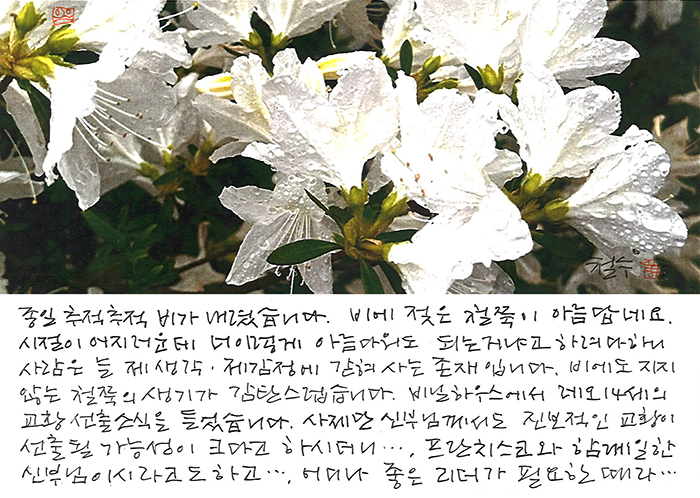 철수
종일 추적추적 비가 내렸습니다. 비에 젖은 철쭉이 아름답네요.
시절이 어지러운데 너이렇게 아름다워도 되는거냐고
사람은 늘 제생각·제감정에 갇혀 사는 존재입니다. 비에도 지지
않는 철쭉의 생기가 감탄스럽습니다. 비닐하우스에서 레오14세의
교황 선출소식을 들었습니다. 사제단 신부님께서도 진보적인 교황이
선출될 가능성이 크다고 하시더니···, 프란치스코와 함께일한
신부님이시라고도 하고···, 어디나 좋은 리더가 필요한 때라···